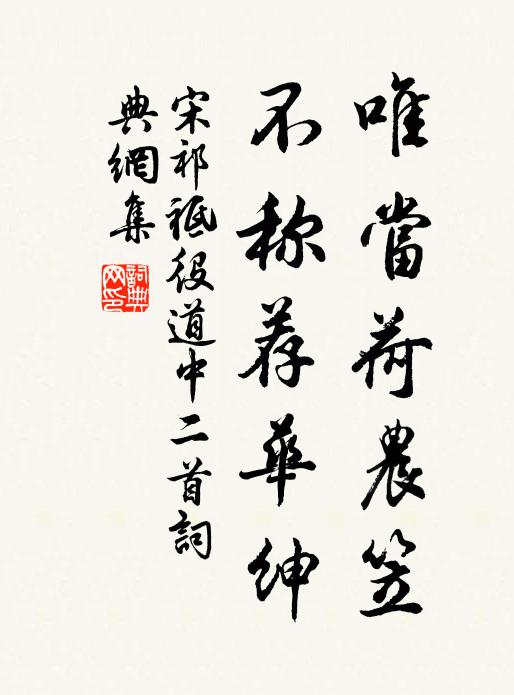 唯當荷農笠
不称荐華紳
宋祁祗役道中二首詞
典網集
詞典網印